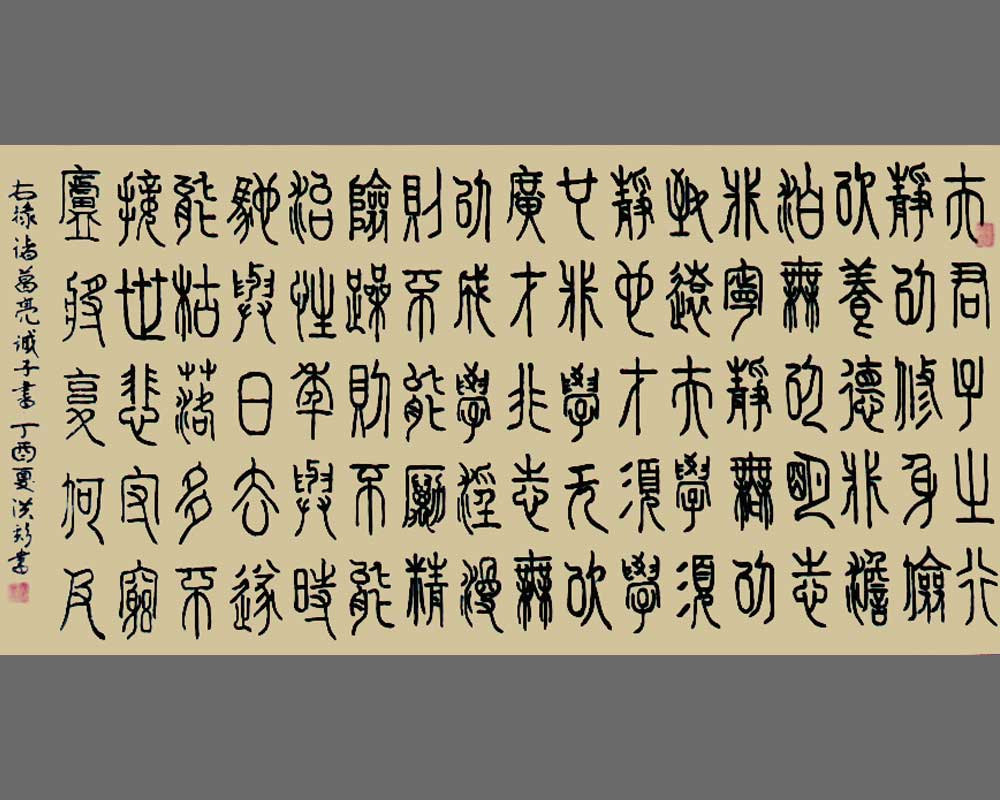 夫君子之行
靜以修身儉
以養德非澹
泊無以明志
非寧靜無以
致遠夫學須
靜也才須學
也非學无以
廣才非志無
以成學淫漫
則不能勵精
險躁則不能
治性年與時
馳與日去遂
能枯落多不
接世悲守窮
廬將復何及
右録諸葛亮诫子書 丁酉夏 洪書